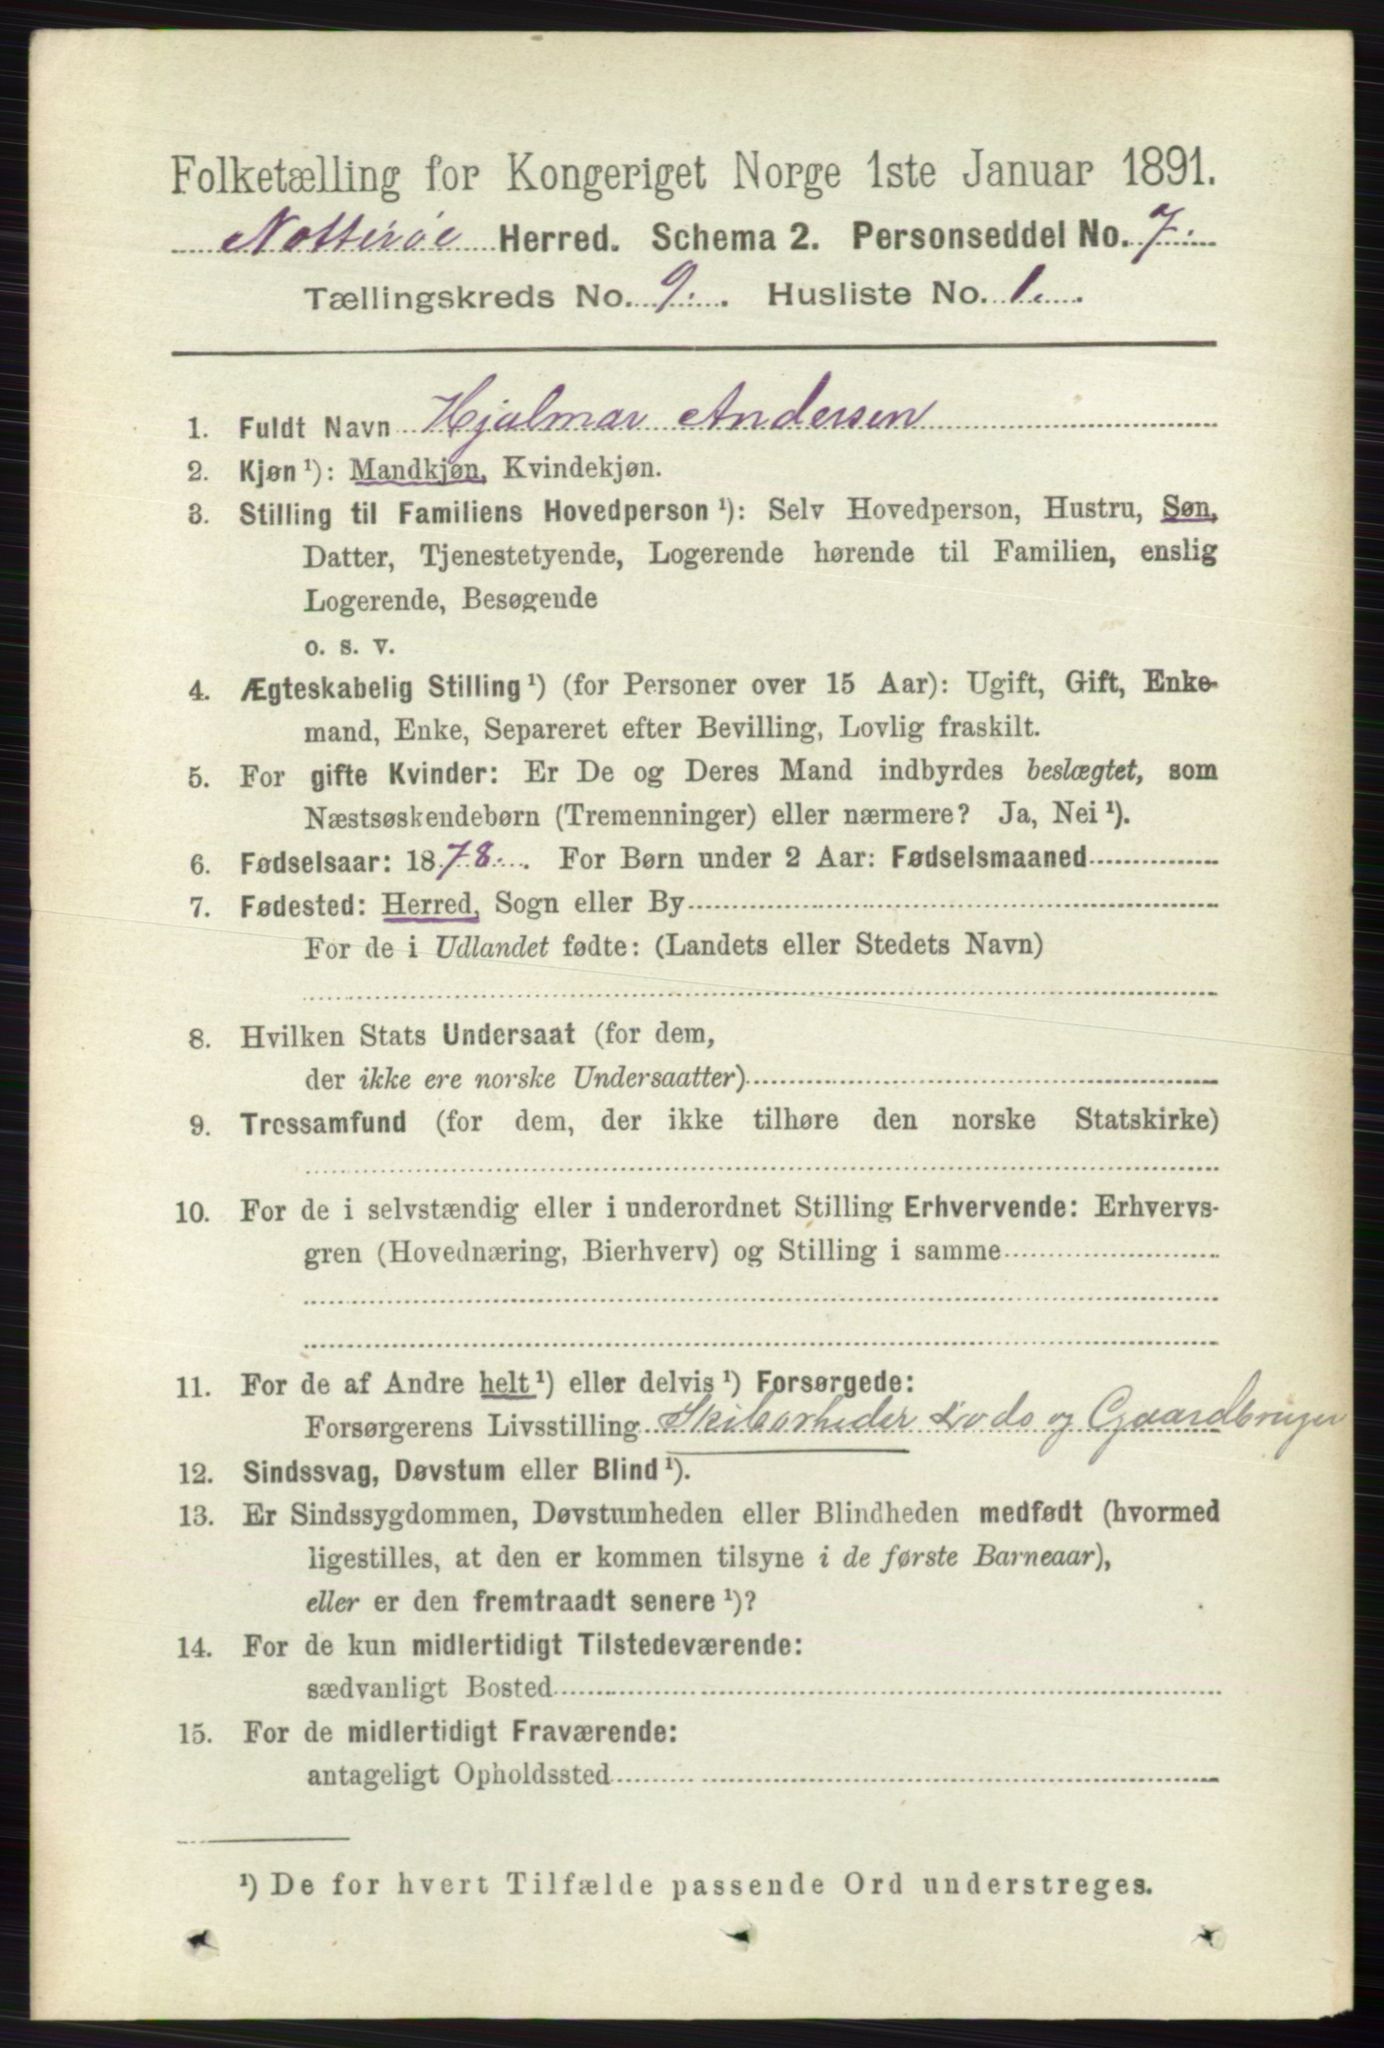 Folketælling for Kongeriget Norge 1ste Januar 1891.
Nøtterøe Herred. Schema 2. Personseddel No. 7.
Tællingskreds No. 9. Husliste No. 1.
1. Fuldt Navn Hjalmar Andersen
2. Kjøn ¹): Mandkjøn, Kvindekjøn.
3. Stilling til Familiens Hovedperson ¹): Selv Hovedperson, Hustru, Søn,
Datter, Tjenestetyende, Logerende hørende til Familien, enslig
Logerende, Besøgende
o. s. v.
4. Ægteskabelig Stilling ¹) (for Personer over 15 Aar): Ugift, Gift, Enke-
mand, Enke, Separeret efter Bevilling, Lovlig fraskilt.
5. For gifte Kvinder: Er De og Deres Mand indbyrdes beslægtet, som
Næstsøskendebørn (Tremenninger) eller nærmere? Ja, Nei ¹).
6. Fødselsaar: 1878. For Børn under 2 Aar: Fødselsmaaned
7. Fødested: Herred, Sogn eller By
For de i Udlandet fødte: (Landets eller Stedets Navn)
8. Hvilken Stats Undersaat (for dem,
der ikke ere norske Undersaatter)
9. Trossamfund (for dem, der ikke tilhøre den norske Statskirke)
10. For de i selvstændig eller i underordnet Stilling Erhvervende: Erhvervs-
gren (Hovednæring, Bierhverv) og Stilling i samme
11. For de af Andre helt ¹) eller delvis ¹) Forsørgede:
Forsørgerens Livsstilling og Gaardbruger
12. Sindssvag, Døvstum eller Blind ¹).
13. Er Sindssygdommen, Døvstumheden eller Blindheden medfødt (hvormed
ligestilles, at den er kommen tilsyne i de første Barneaar),
eller er den fremtraadt senere ¹)?
14. For de kun midlertidigt Tilstedeværende:
sædvanligt Bosted
15. For de midlertidigt Fraværende:
antageligt Opholdssted
¹) De for hvert Tilfælde passende Ord understreges.